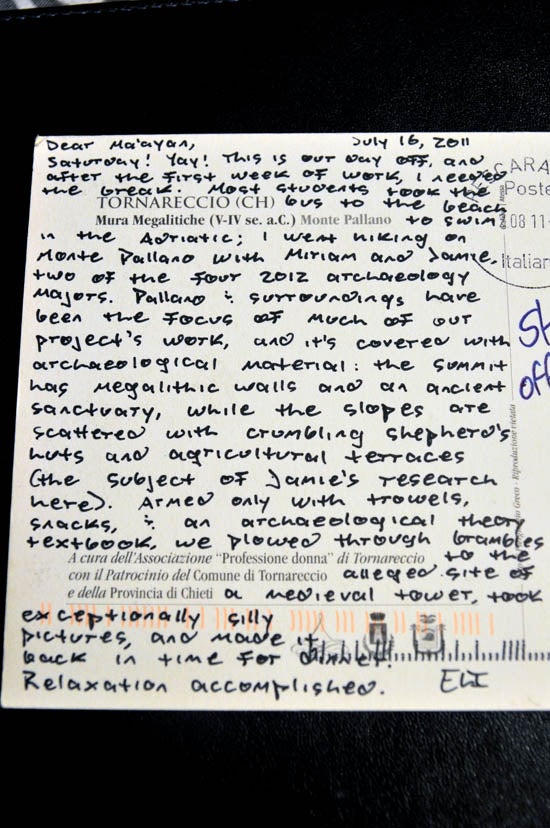 Dear Ma'ayan, July 16, 2011
Saturday! Yay! This is our day off, and
after the first week of work, I needed
the break. Most students took the
TORNARECCIO (CH) bus to the beach
Mura Megalitiche (V-IV se. a.C.) Monte Pallano to swim
in the Adriatic; I went hiking on
Monte Pallano with Miriam and Jamie,
two of the four 2012 archaeology
majors. Pallano & surroundings have
been the focus of much of our
project's work, and it's covered with
archaeological material: the summit
has megalithic walls and an ancient
sanctuary, while the slopes are
scattered with crumbling shepherd's
huts and agricultural terraces
(the subject of Jamie's research
here). Armed only with trowels,
snacks, & an archaeological theory
textbook, we plowed through brambles
A cura dell'Associazione "Professione donna" di Tornareccio to the
con il Patrocinio del Comune di Tornareccio alleged site of
e della Provincia di Chieti a medieval tower, took
exceptionally silly
pictures, and made it
back in time for dinner.
Relaxation accomplished. ELI
CARA
Poste
08 11-
Italian
St
off
Greco - Riproduzione vietata